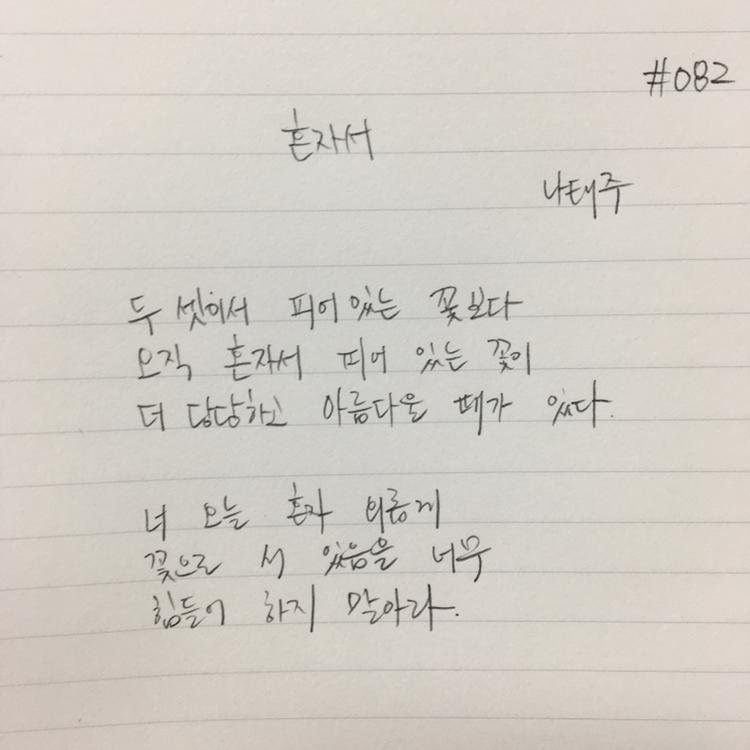 #082
혼자서
나태주
두 셋이서 피어 있는 꽃보다
오직 혼자서 피어 있는 꽃이
더 당당하고 아름다울 때가 있다.
너 오늘 혼자 외롭게
꽃으로 서 있음을 너무
힘들어 하지 말아라.